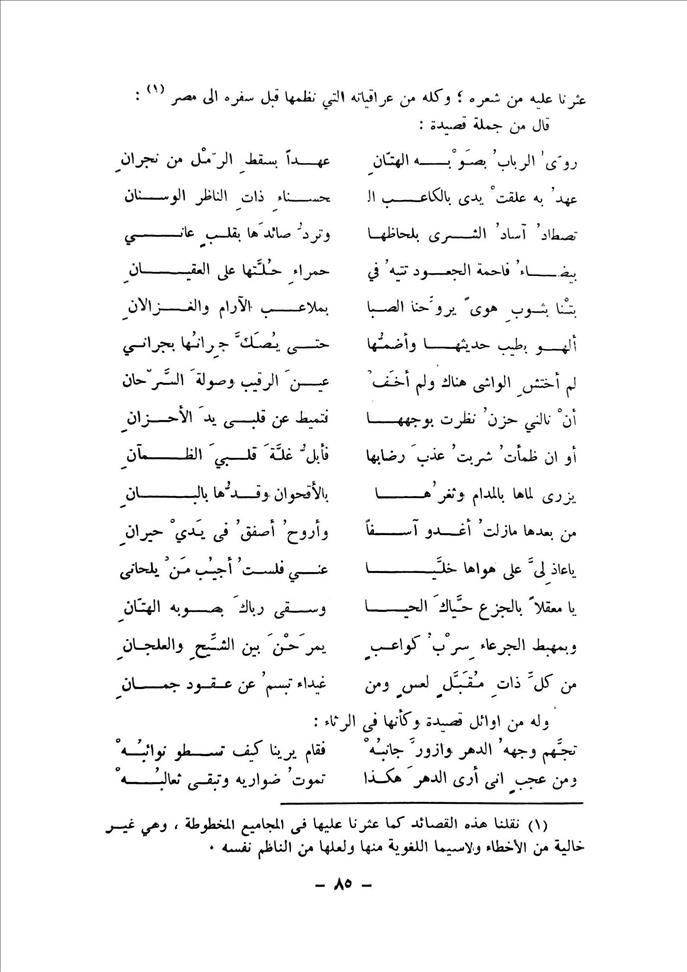 عثرنا عليه من شعره ؛ وكله من عراقياته التي نظمها قبل سفره الى مصر (١) :
قال من جملة قصيدة :
روّى الرباب بصوْبه الهتّان عهداً بسقط الرّمْل من نجران
عهدُ به علقتْ يدى بالكاعب ال حسناء ذات الناظر الوسنان
تصطادُ آسادُ الشرى بلحاظها وتردُّ صائدَها بقلبٍ عاني
بيضاءُ فاحمة الجعود تتيه في حمراء حُلَّتها على العقيان
بتْنا بثوب هوىً يروِّحنا الصبا بملاعب الآرام والغزالان
ألهو بطيب حديثها وأضمُّها حتى يُصَكَّ جِرانُها بجراني
لم أختش الواشى هناك ولم أخَفْ عينَ الرقيب وصولةَ السَّرْحان
أنْ نالني حزنُ نظرت بوجهها فتميط عن قلبى يدَ الأحزان
أو ان ظمأتُ شربتُ عذبَ رضابها فأبلُّ غلَّةَ قلبيَ الظمآن
يزرى لماها بالمدام وثغرُها بالأقحوان وقدُّها بالبان
من بعدها مازلتُ أغدو آسفاً وأروحُ أصفقُ فى يَديْ حيران
ياعاذليَّ على هواها خلَّيا عني فلستُ أجيُب مَنْ يلحانى
يا معقلاً بالجزع حيَّاكَ الحيا وسقى رباكَ بصوبه الهتّان
وبمهبط الجرعاء سرْبُ كواعبٍ يمرَحْنَ بين الشِّيح والعلجان
من كلَّ ذات مُقبَّلٍ لعسٍ ومن غيداء تبسمُ عن عقود جمان
وله من اوائل قصيدة وكأنها فى الرثاء :
تجهَّم وجهُ الدهر وازورَّ جانبُهْ فقام يرينا كيف تسطو نوائبُهْ
ومن عجبٍ انى أرى الدهرَ هكذا تموتُ ضواريه وتبقى ثعالبُهْ
(١) نقلنا هذه القصائد كما عثرنا عليها فى المجاميع المخطوطة ، وهي غير
خالية من الأخطاء ولاسيما اللغوية منها ولعلها من الناظم نفسه .
– ٨٥ –